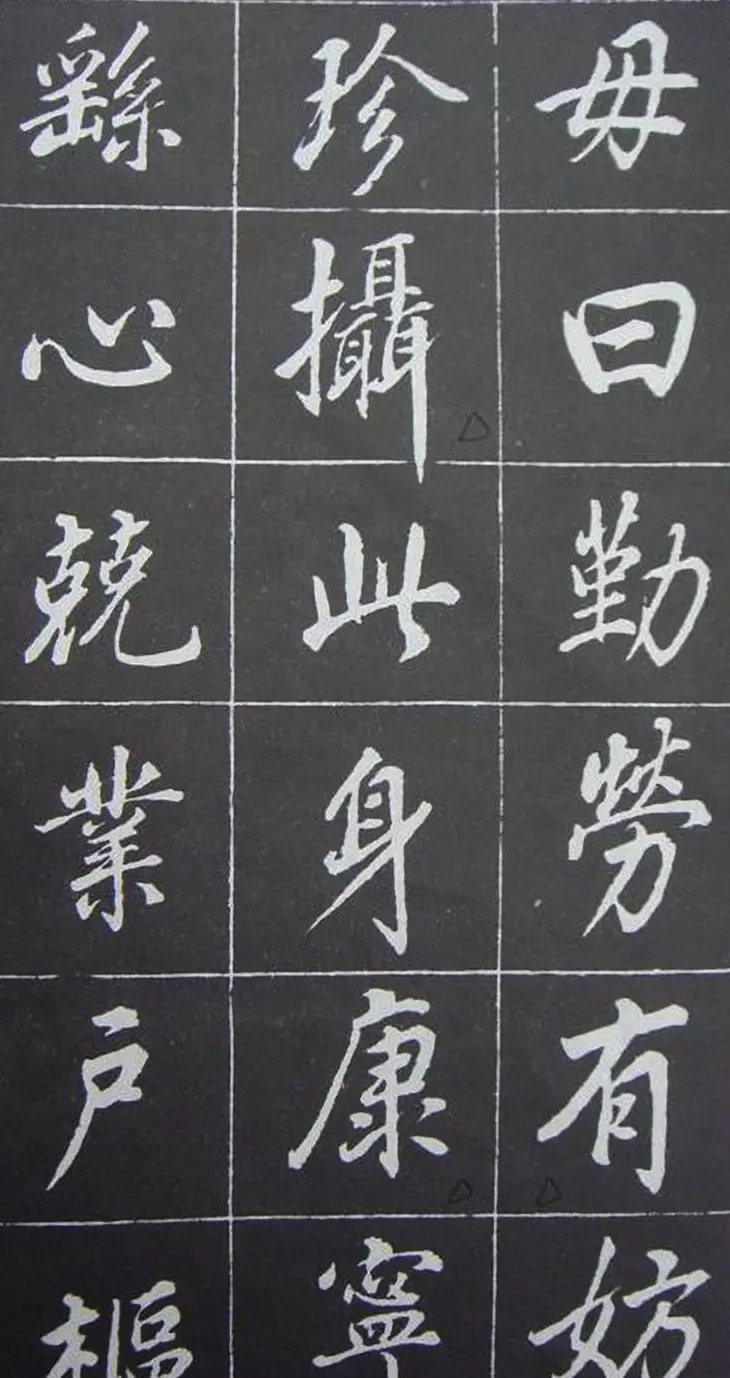 毋曰勤勞有妨
珍攝此身康寧
繇心兢業戶樞